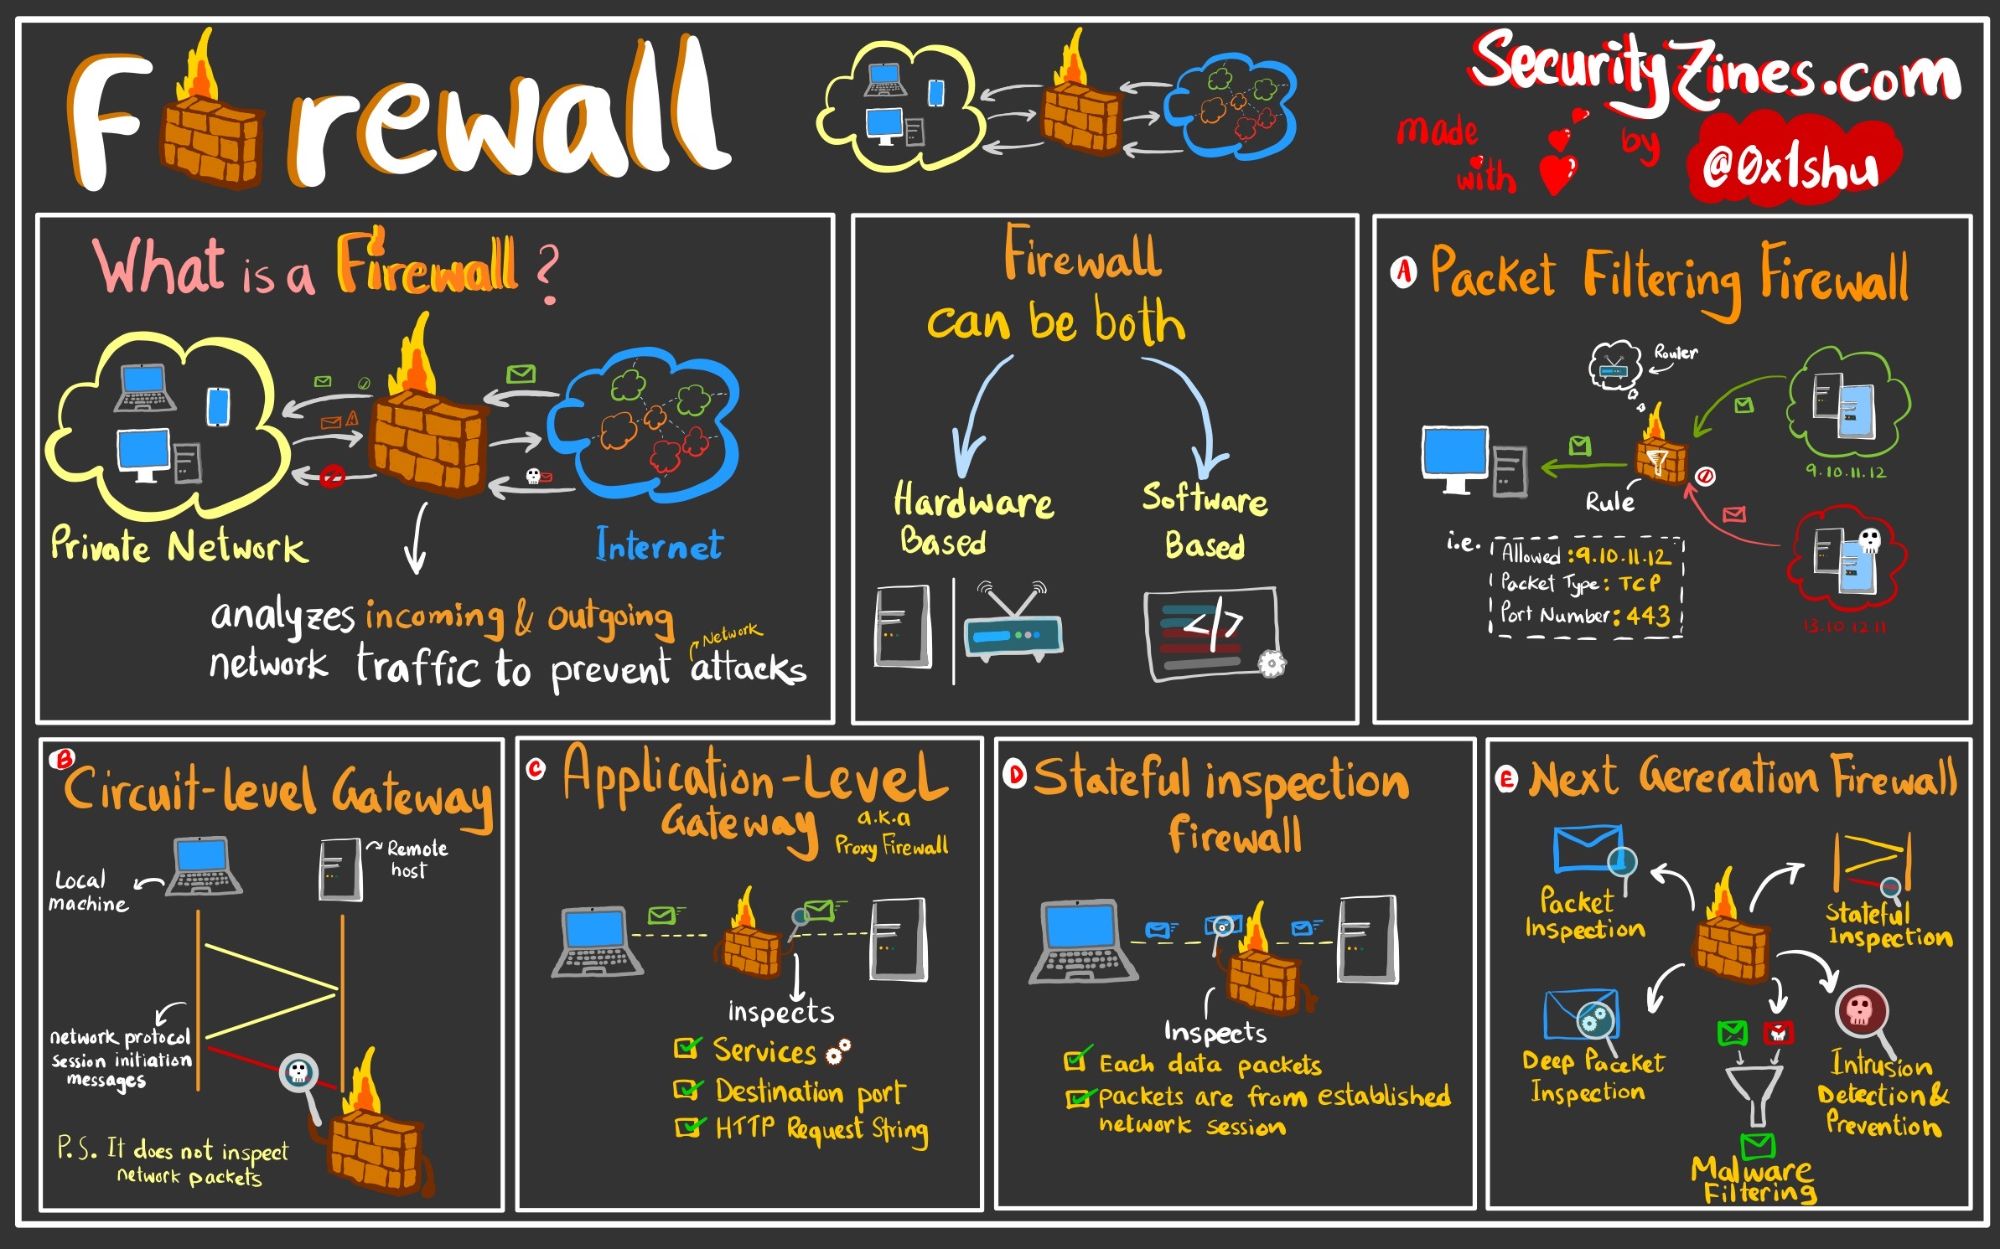 Firewall
SecurityZines.com
made
with
by
@0x1shu
What is a Firewall?
Private Network
Internet
analyzes incoming & outgoing
Network
network traffic to prevent attacks
Firewall
can be both
Hardware
Based
Software
Based
</>
A Packet Filtering Firewall
Router
9.10.11.12
Rule
i.e.
Allowed : 9.10.11.12
Packet Type : TCP
Port Number : 443
13.10.12.11
B
Circuit-level Gateway
Local
machine
Remote
host
network protocol
session initiation
messages
P.S. It does not inspect
network packets
C Application-Level
Gateway
a.k.a
Proxy Firewall
inspects
Services
Destination port
HTTP Request String
D Stateful inspection
firewall
Inspects
Each data packets
packets are from established
network session
E Next Gereration Firewall
Packet
Inspection
Stateful
Inspection
Deep Paceket
Inspection
Intrusion
Detection &
Prevention
Malware
Filtering